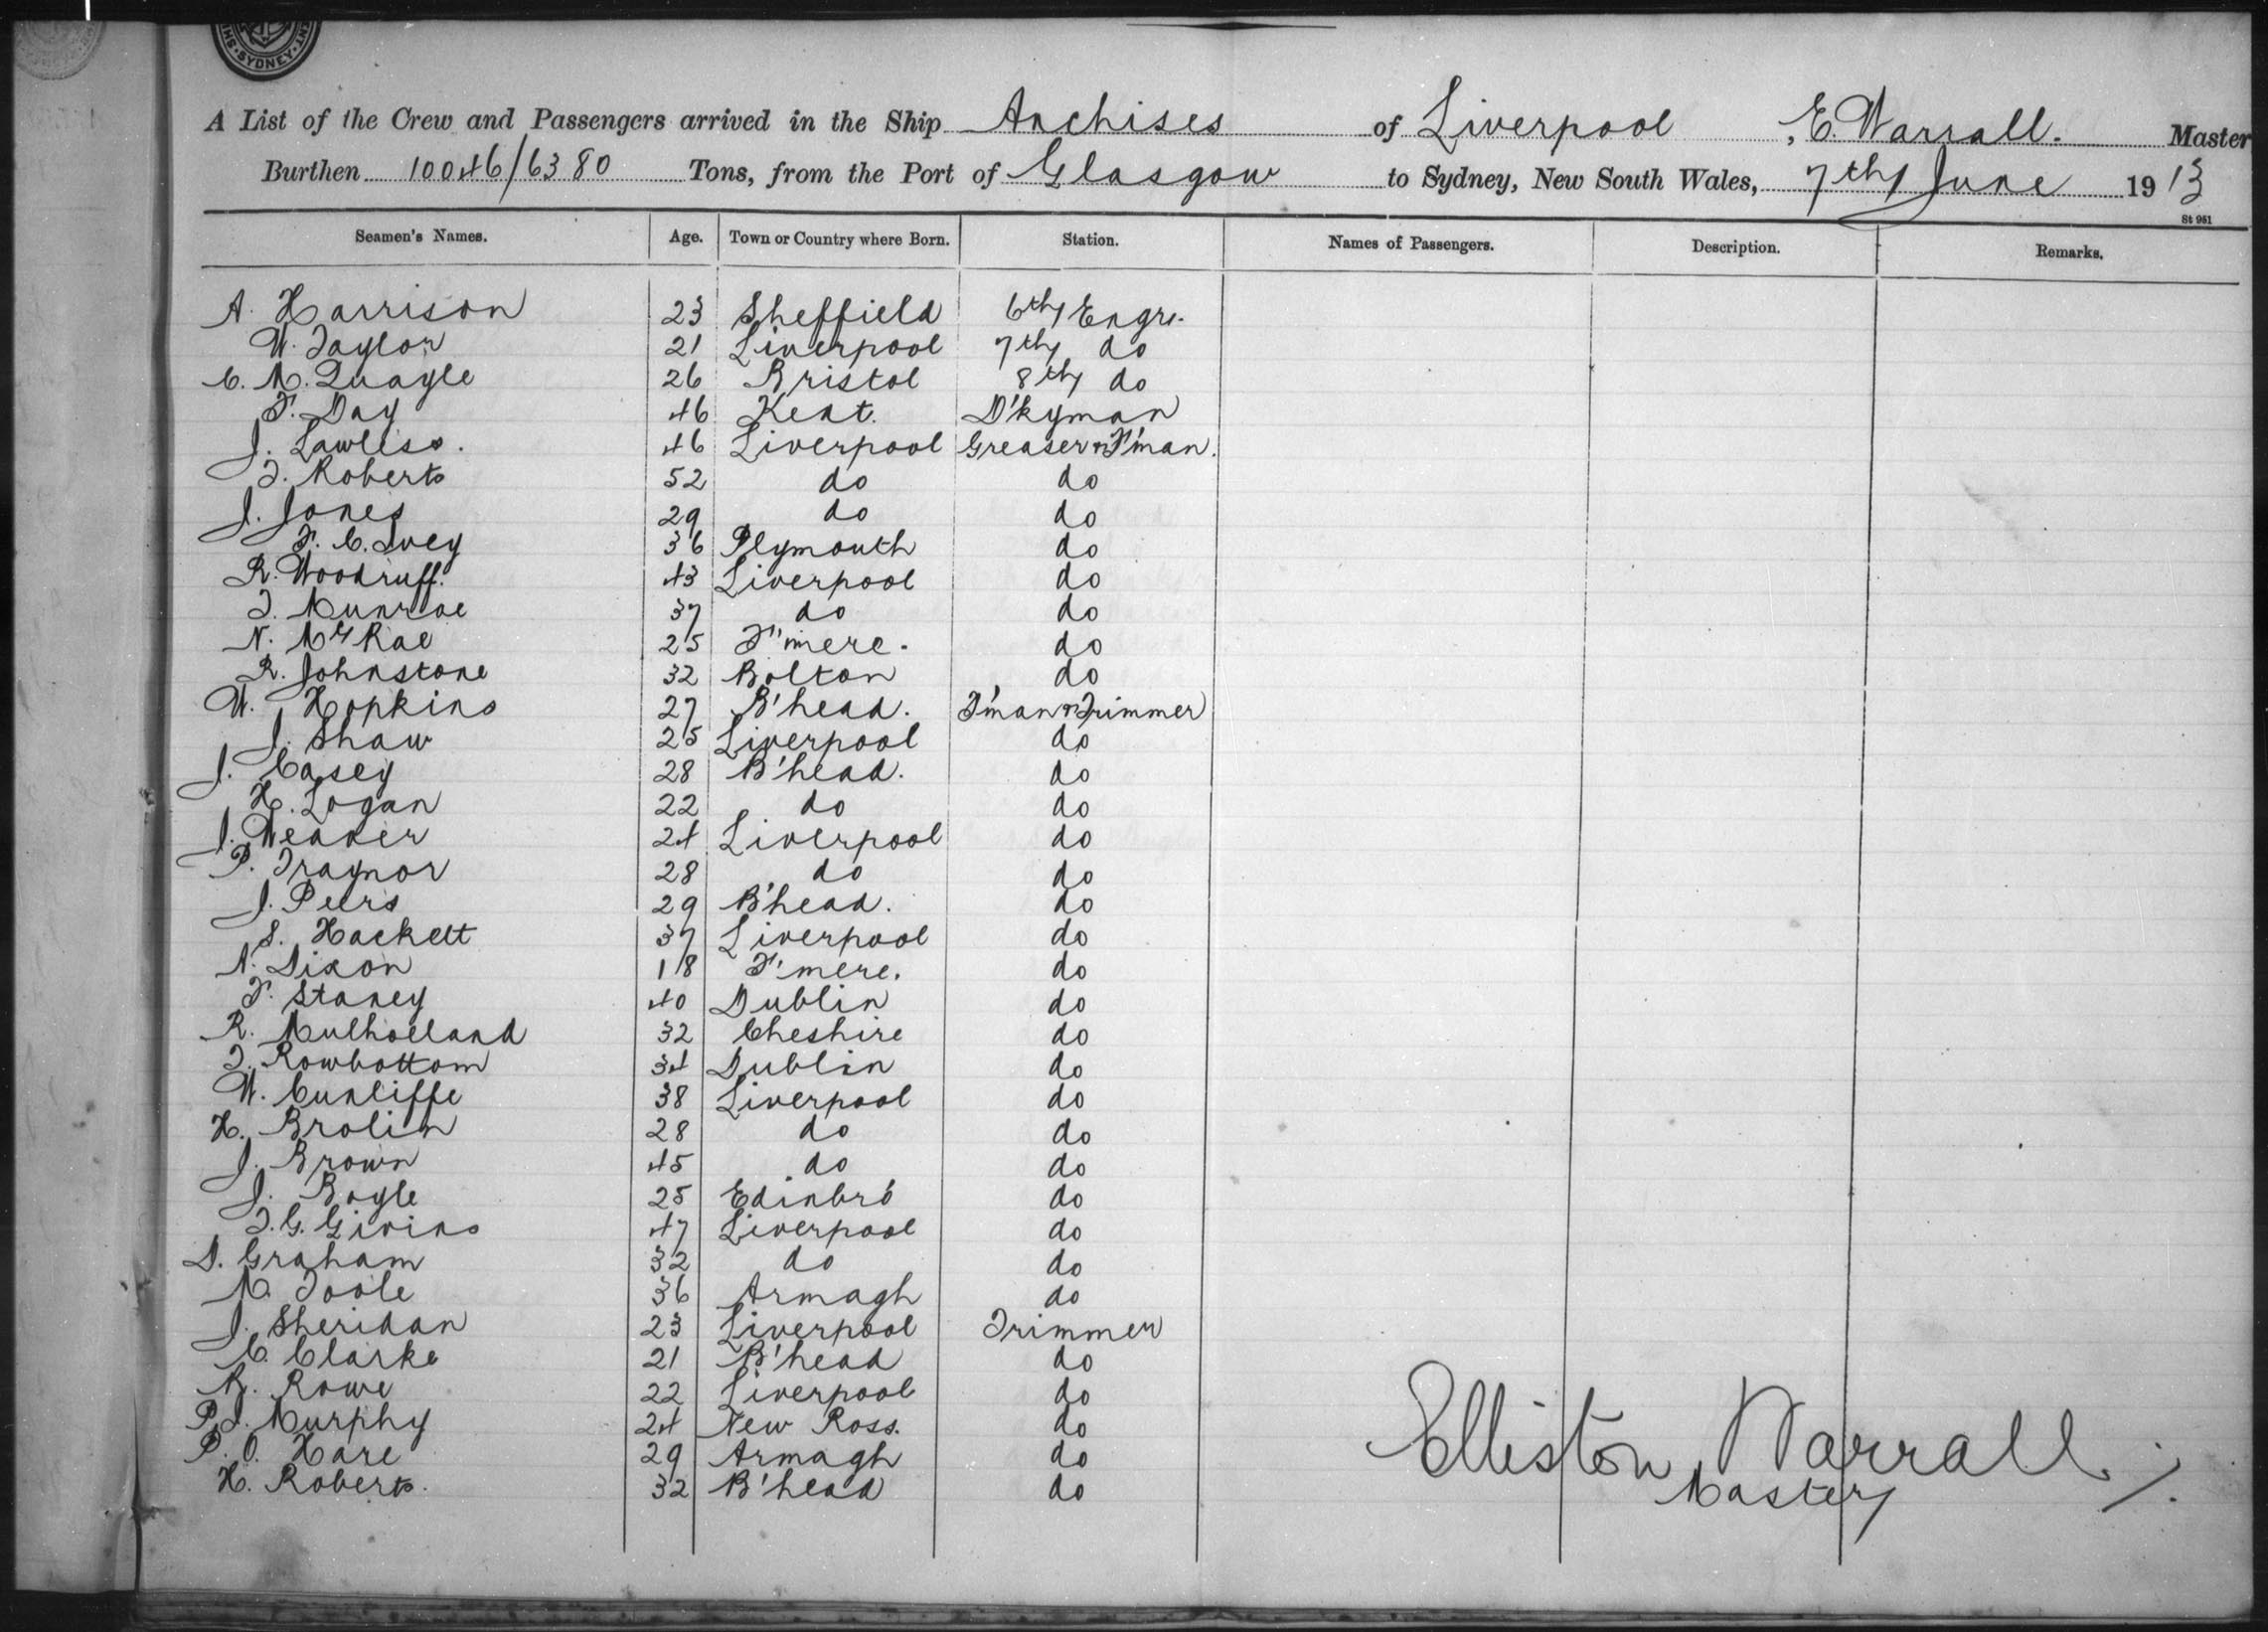 SYDNEY
A List of the Crew and Passengers arrived in the Ship Anchises of Liverpool, E. Warrall. Master
Burthen 10046/6380 Tons, from the Port of Glasgow to Sydney, New South Wales, 7th June 1913
St 961
Seamen's Names. Age. Town or Country where Born. Station. Names of Passengers. Description. Remarks.
A. Harrison 23 Sheffield 6th Engr.
W. Taylor 21 Liverpool 7th do
C. M. Quayle 26 Bristol 8th do
F. Day 46 Kent. D'kyman
J. Lawless. 46 Liverpool Greaser & F'man.
T. Roberts 52 do do
J. Jones 29 do do
F. C. Ivey 36 Plymouth do
R. Woodruff. 43 Liverpool do
T. Munroe 37 do do
N. McRae 25 T'mere. do
R. Johnstone 32 Bolton do
W. Hopkins 27 B'head. F'man & Trimmer
J. Shaw 25 Liverpool do
J. Casey 28 B'head. do
H. Logan 22 do do
J. Weaver 24 Liverpool do
P. Traynor 28 do do
J. Peers 29 B'head. do
S. Hackett 37 Liverpool do
N. Dixon 18 T'mere. do
F. Staney 40 Dublin do
R. Mulholland 32 Cheshire do
T. Rowbottom 34 Dublin do
W. Cunliffe 38 Liverpool do
H. Brolin 28 do do
J. Brown 45 do do
J. Boyle 25 Edinbro' do
T. G. Givins 47 Liverpool do
D. Graham 32 do do
M. Toole 36 Armagh do
J. Sheridan 23 Liverpool Trimmer
C. Clarke 21 B'head do
R. Rowe 22 Liverpool do
P. J. Murphy 24 New Ross. do
P. O. Hare 29 Armagh do
H. Roberts. 32 B'head do
Elliston Warrall
Master